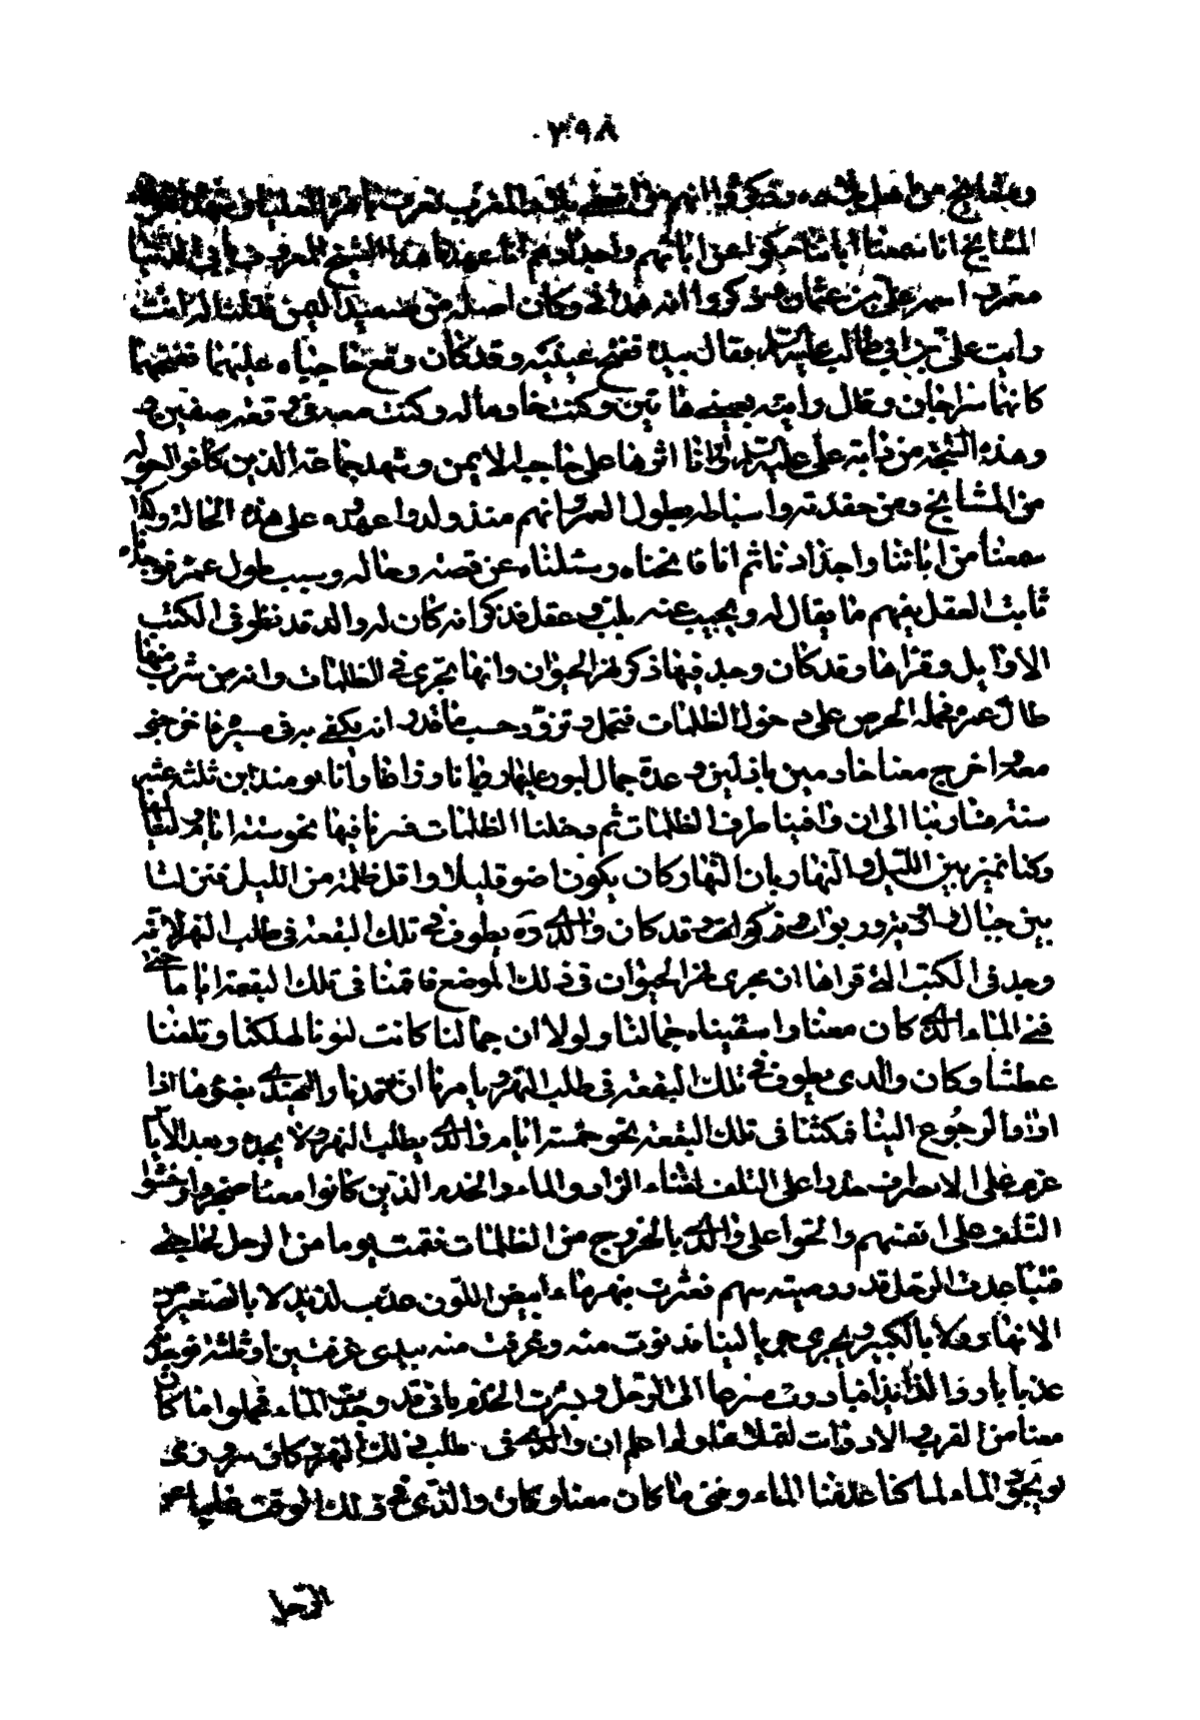 ٣٩٨
ومشايخ من اهل بلده وذكروا انهم من اقصى بلاد المغرب بقرب باهرة العليا وشهدوا هؤلاء
المشايخ انا سمعنا آبائنا حكوا عن ابائهم واجدادهم انا عهدنا هذا الشيخ المعروف بابي الدنيا
معمر اسمه علي بن عثمان وذكروا انه همداني وكان اصله من صعيد اليمن فقلنا له انت
رايت علي بن ابي طالب عليه السلم فقال بيده ففتح عينيه وقد كان وقع حاجباه عليهما ففتحهما
كانهما سراجان وقال رايته بعيني هاتين وكنت خادما له وكنت معه في وقعة صفين
وهذه الشجة من دابة علي عليه السلم وارانا اثرها على حاجبه الايمن وشهد جماعة الذين كانوا حوله
من المشايخ ومن حفدته واسباطه بطول العمر وانهم منذ ولدوا عهدوه على هذه الحالة وكذا
سمعنا من ابائنا واجدادنا ثم انا فاتحناه وسئلناه عن قصته وحاله وسبب طول عمره فوجدناه
ثابت العقل يفهم ما يقال له ويجيب عنه بلب وعقل فذكر انه كان له والد قد نظر في الكتب
الاوايل وقراها وقد كان وجد فيها ذكر نهر الحيوان وانها تجري في الظلمات وانه من شرب منها
طال عمره فحمله الحرص على دخول الظلمات فتحمل وتزود حسب ما قدر انه يكفي به في مسيره فاخرجني
معه واخرج معنا خادمين باذلين وعدة جمال لبون عليها روايانا وزادنا وانا يومئذ ابن ثلثة عشر
سنة فسار بنا الى ان وافينا طرف الظلمات ثم دخلنا الظلمات فسرنا فيها نحو ستة ايام ولياليها
وكنا نميز بين الليل والنهار بان النهار كان يكون اضوء قليلا واقل ظلمة من الليل فنزلنا
بين جبال واودية وربوات وذكوات وقد كان والدي ره يطوف في تلك البقعة في طلب النهر لانه
وجد في الكتب التي قراها ان مجرى نهر الحيوان في ذلك الموضع فاقمنا في تلك البقعة اياما حتى
فني الماء الذي كان معنا واسقيناه جمالنا ولولا ان جمالنا كانت لبونا لهلكنا وتلفنا
عطشا وكان والدي يطوف في تلك البقعة في طلب النهر ويامرنا ان نوقد نارا ليهتدي بضوءها اذا
اراد الرجوع الينا فمكثنا في تلك البقعة نحو خمسة ايام ووالدي يطلب النهر ولا يجده وبعد الايام
عزم على الانصراف حذرا على التلف لفناء الزاد والماء والخدم الذين كانوا معنا ضجروا وخشوا
التلف على انفسهم والحوا على والدي بالخروج من الظلمات فقمت يوما من الرحل لحاجتي
فتباعدت من الرحل قدر رمية سهم فعثرت بنهر ماء ابيض اللون عذب لذيذ لا بالصغير من
الانهار ولا بالكبير ويجري جريا لينا فدنوت منه وغرفت منه بيدي غرفتين او ثلثة فوجدته
عذبا باردا لذيذا فبادرت مسرعا الى الرحل وبشرت الخدم باني قد وجدت الماء فحملوا ما كان
معنا من القرب والادوات لنملاءها ولم اعلم ان والدي في طلب ذلك النهر وكان سروري
بوجود الماء لما كنا عدمنا الماء وفني ما كان معنا وكان والدي في ذلك الوقت غائبا عن
الرحل